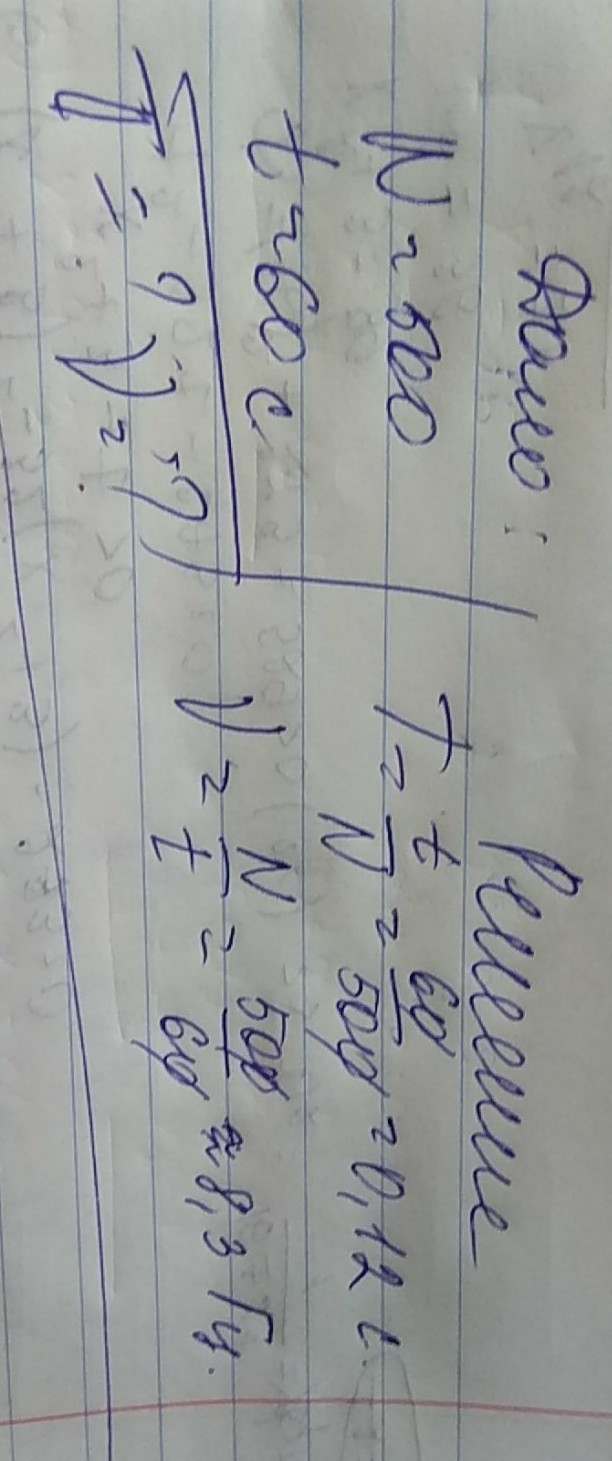 Дано:
N = 500
t = 60 с
T = ? ν = ?
Решение
T = t/N = 60/500 = 0,12 с.
ν = N/t = 500/60 ≈ 8,3 Гц.